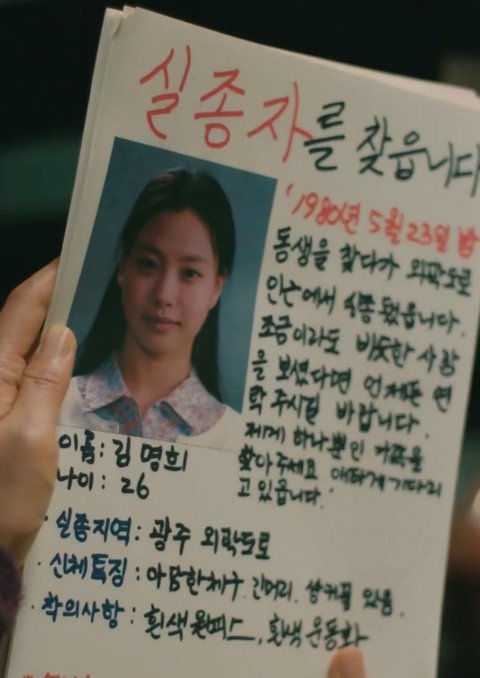 실종자를 찾읍니다
'1980년 5월 23일 밤
동생을 찾다가 외곽도로
인근에서 실종됐읍니다.
조금이라도 비슷한 사람
을 보셨다면 언제든 연
락 주시길 바랍니다.
제게 하나뿐인 가족을
찾아주세요 애타게 기다리
고 있읍니다.
이름: 김명희
나이: 26
· 실종지역: 광주 외곽도로
· 신체특징: 아담한체구, 긴머리, 쌍커풀 있음.
· 착의사항: 흰색원피스, 흰색운동화